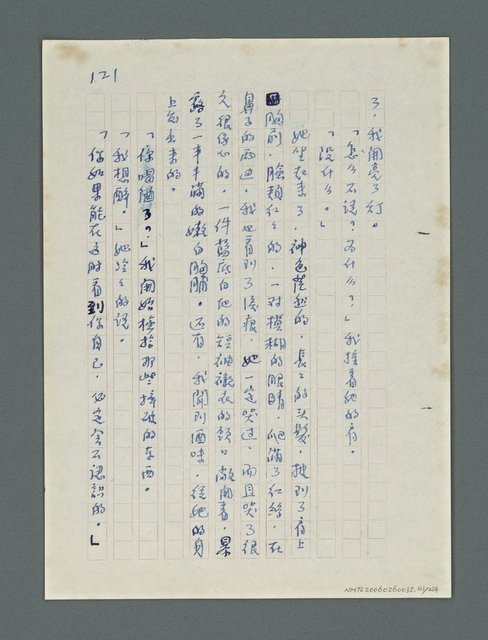 121
了，我開亮了灯。
「怎么不說？為什么？」我推着她的肩。
「沒什么。」
她坐起來了，神色茫然的，長長的头髮，披到了肩上
胸前，臉頰紅紅的，一对模糊的眼睛，爬滿了紅絲，在
鼻子的兩边，我也看到了淚痕，她一定哭过，而且哭了很
久很傷心的，一件藍底白花的短袖襯衣的領口敞開着，暴
露了一半丰滿的嫩白胸脯。还有，我聞到酒味，從她的身
上發出來的。
「你喝酒了？」我開始收拾那些摔破的东西。
「我想醉。」她冷冷的說。
「你如果能在这时看到你自己，你定会不認識的。」
NMTL20060260032. 93/224